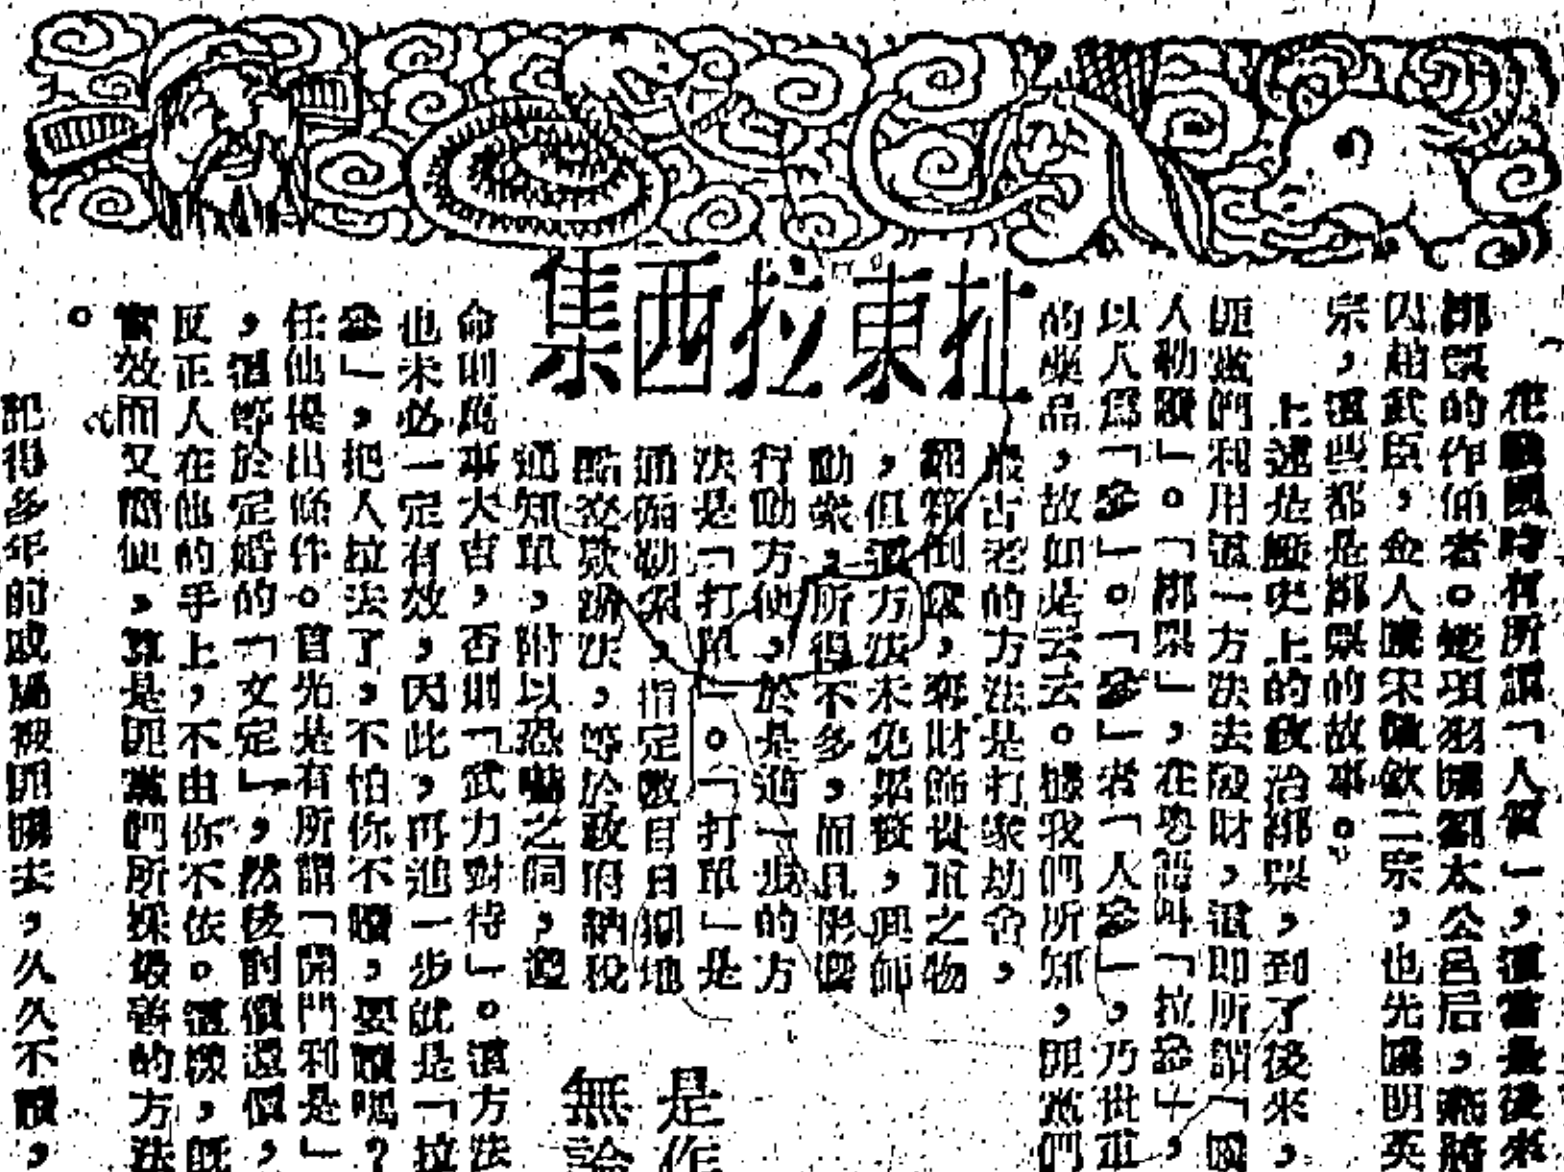 扯東拉西集
在戰國時有所謂「人質」，這當是後來
綁票的作俑者。楚項羽擄劉太公呂后，燕將
囚趙武臣，金人虜宋徽欽二宗，也先擄明英
宗，這些都是綁票的故事。
上述是歷史上的政治綁票，到了後來，
匪黨們利用這一方法去發財，這即所謂「擄
人勒贖」。「綁票」，在粵語叫「拉參」，
以人爲「參」。「參」者「人參」，乃世重
的藥品，故如是云云。據我們所知，匪黨們
最古老的方法是打家劫舍，
翻箱倒篋，奪財飾貴重之物
，但這方法未免累贅，興師
動衆，所得不多，而且很難
行動方便，於是進一步的方
法是「打單」。「打單」是
通函勒索，指定數目日期地
點交欵辦法，等於政府納稅
通知單，附以恐嚇之詞，遵
命則萬事大吉，否則「武力對待」。這方法
也未必一定有效，因此，再進一步就是「拉
參」，把人拉去了，不怕你不贖，要贖嗎？
任他提出條件。首先是有所謂「開門利是」
，這等於定婚的「文定」，然後討價還價，
反正人在他的手上，不由你不依。這樣，旣
實效而又簡便，算是匪黨們所採最善的方法
。
記得多年前戚屬被匪擄去，久久不贖，
是作
無論